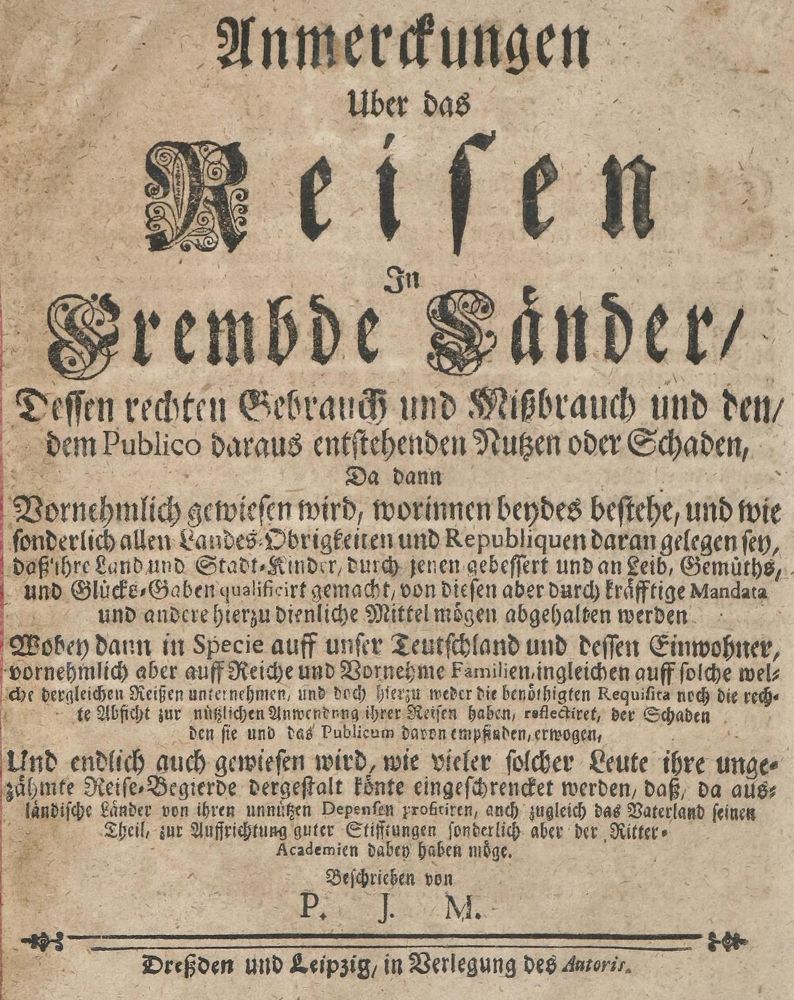 Anmerckungen
Uber das
Reisen
In
Frembde Länder/
Dessen rechten Gebrauch und Mißbrauch und den/
dem Publico daraus entstehenden Nutzen oder Schaden,
Da dann
Vornehmlich gewiesen wird, worinnen beydes bestehe, und wie
sonderlich allen Landes-Obrigkeiten und Republiquen daran gelegen sey,
daß ihre Land und Stadt-Kinder, durch jenen gebessert und an Leib, Gemüths,
und Glücks-Gaben qualificirt gemacht, von diesen aber durch kräfftige Mandata
und andere hierzu dienliche Mittel mögen abgehalten werden
Wobey dann in Specie auff unser Teutschland und dessen Einwohner,
vornehmlich aber auff Reiche und Vornehme Familien, ingleichen auff solche wel-
che dergleichen Reißen unternehmen, und doch hierzu weder die benöthigten Requisita noch die rech-
te Absicht zur nützlichen Anwendnng ihrer Reisen haben, reflectiret, der Schaden
den sie und das Publicum davon empfinden, erwogen,
Und endlich auch gewiesen wird, wie vieler solcher Leute ihre unge-
zähmte Reise-Begierde dergestalt könte eingeschrencket werden, daß, da aus-
ländische Länder von ihren unnützen Depensen profitiren, auch zugleich das Vaterland seinen
Theil, zur Auffrichtung guter Stifftungen sonderlich aber der Ritter-
Academien dabey haben möge.
Beschrieben von
P. J. M.
Dreßden und Leipzig, in Verlegung des Autoris.